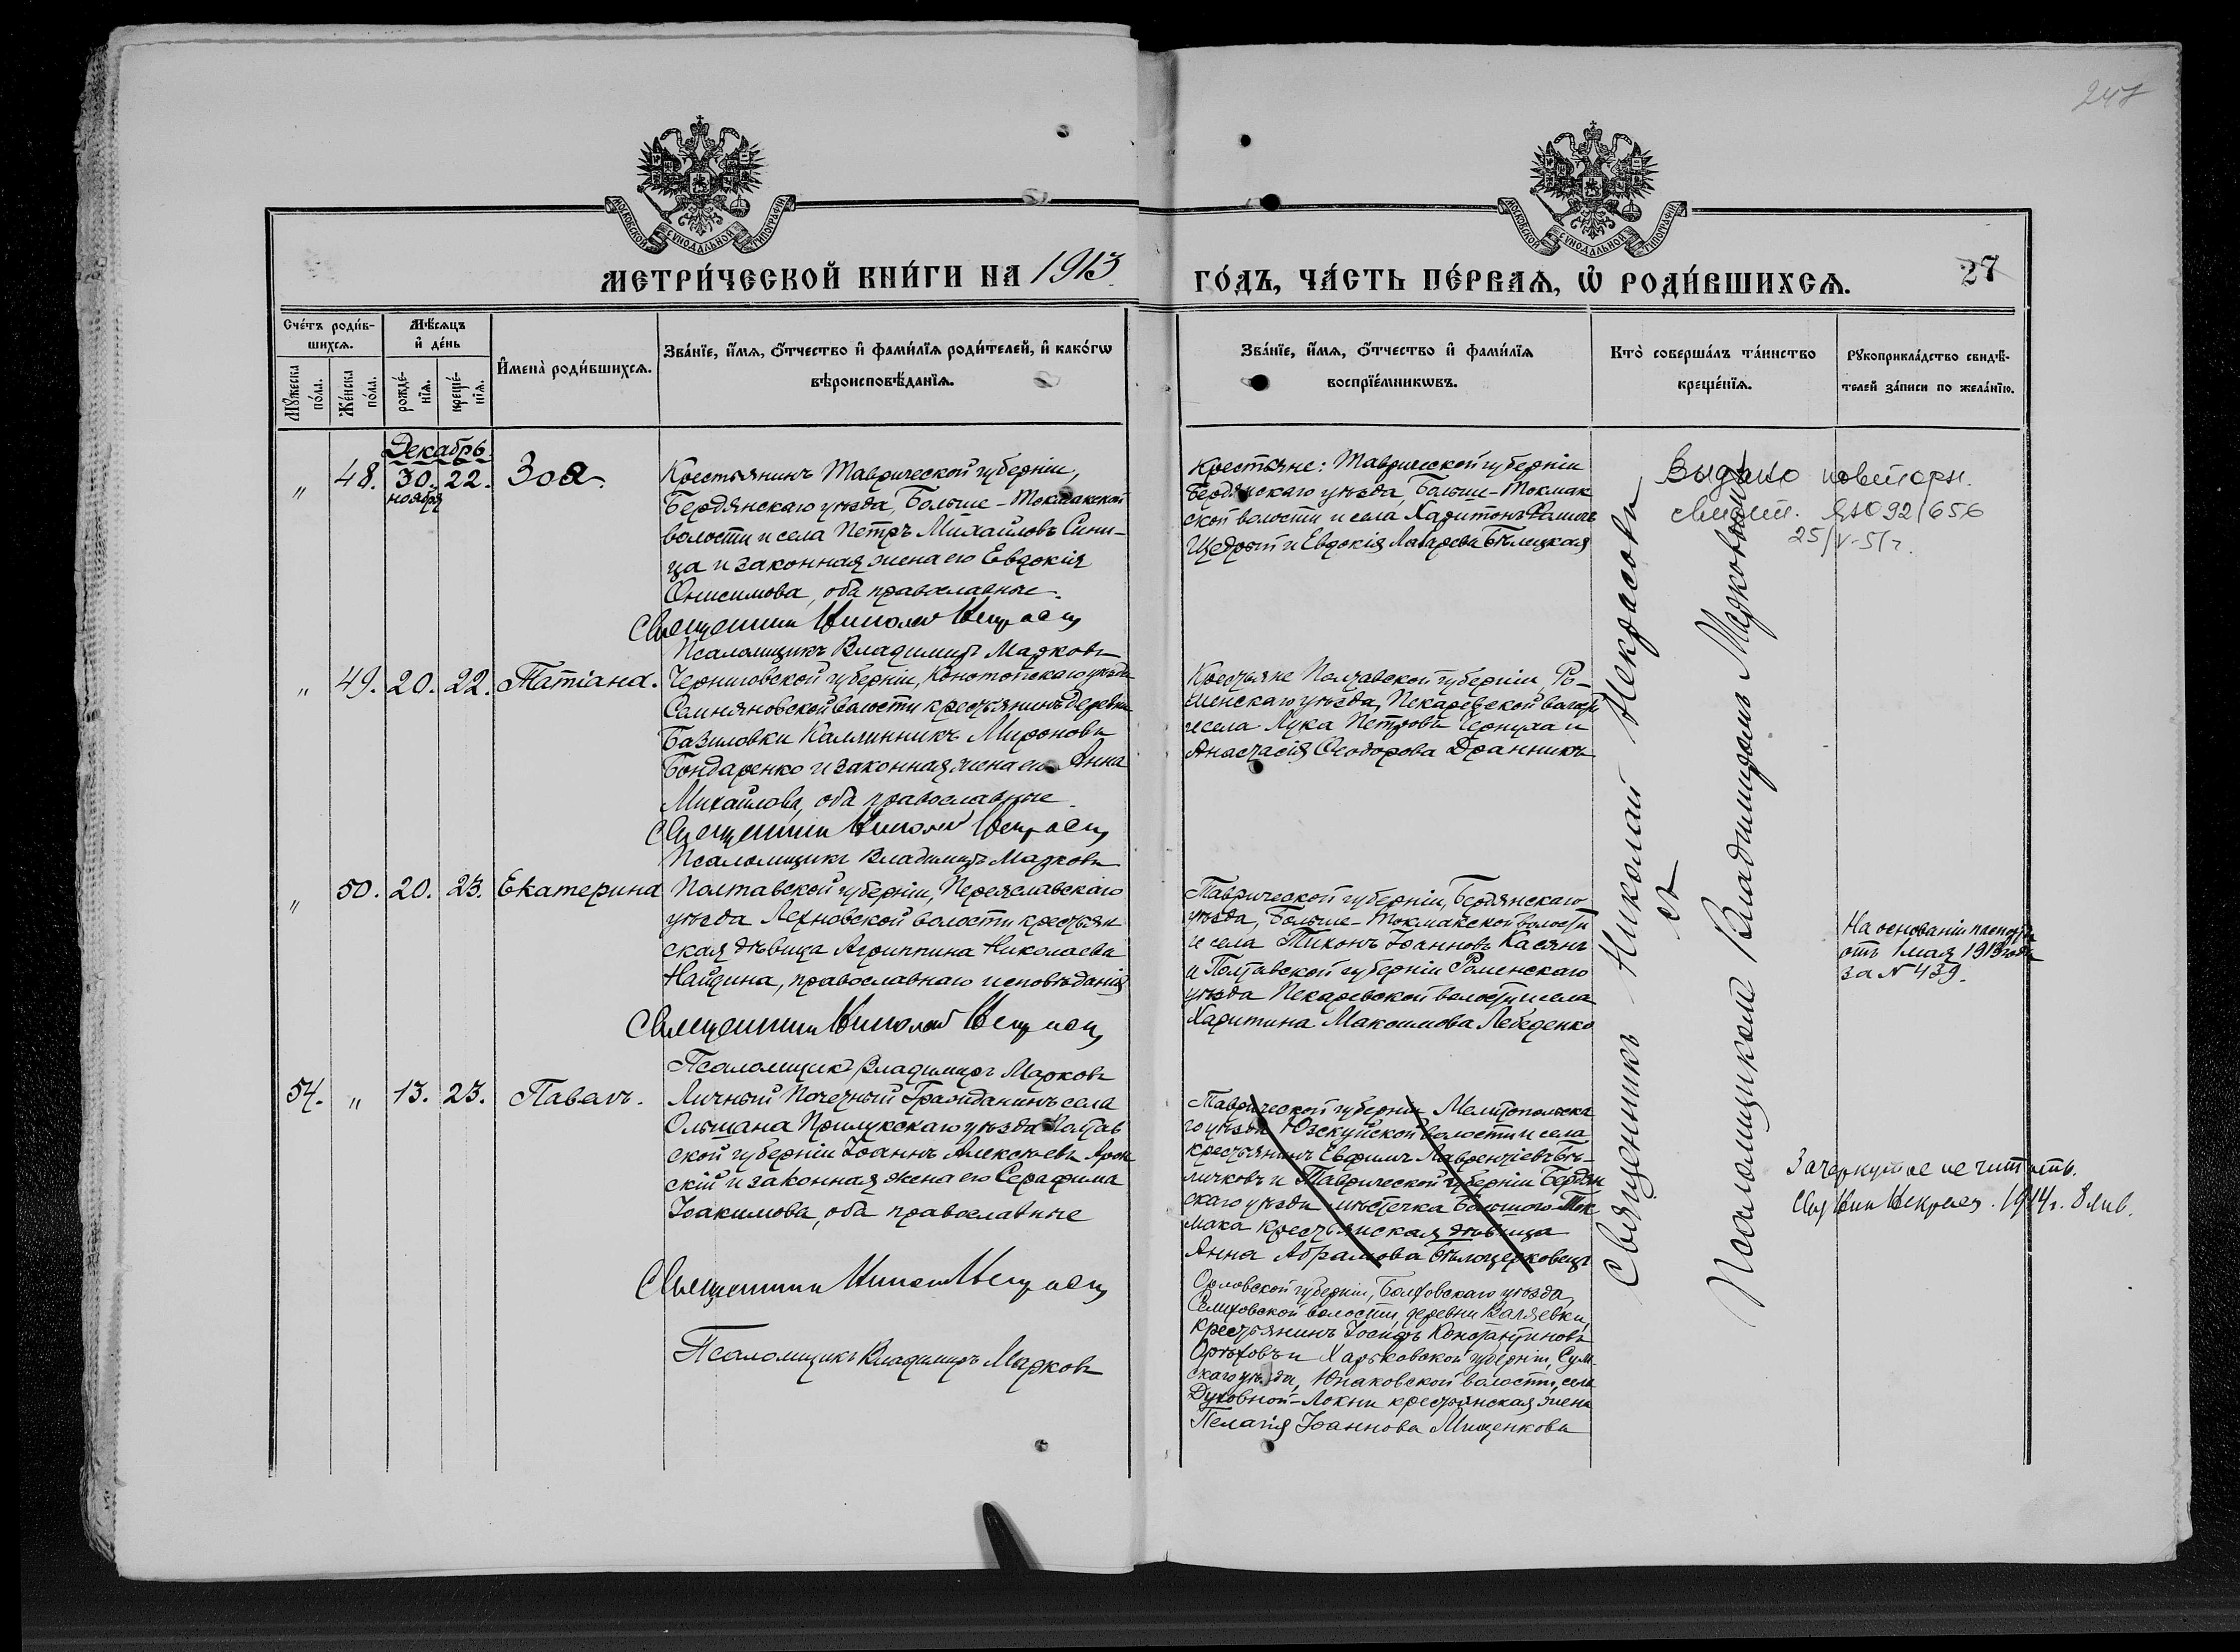 247
МОСКОВСКОЙ СУНОДАЛЬНОЙ ТИПОГРАФІИ
МОСКОВСКОЙ СУНОДАЛЬНОЙ ТИПОГРАФІИ
МЕТРИ́ЧЕСКОЙ КНИ́ГИ НА 1913
ГО́ДЪ, ЧА́СТЬ ПЕ́РВАѦ, Ѡ҆ РОДИ́ВШИХСѦ.
27
Сче́тъ роди́в-
шихсѧ.
Мꙋ́жеска
по́ла.
Же́нска
по́ла.
Мѣ́сѧцъ
и҆ де́нь
рожде́-
нїѧ.
креще́-
нїѧ.
И҆мена̀ роди́вшихсѧ.
Зва́нїе, и҆́мѧ, ѻ҆́тчество и҆ фами́лїѧ роди́телей, и҆ како́гѡ
вѣроисповѣ́данїѧ.
Зва́нїе, и҆́мѧ, ѻ҆́тчество и҆ фами́лїѧ
воспрїе́мникѡвъ.
Кто̀ соверша́лъ та́инство
креще́нїѧ.
Рꙋкоприкла́дство свидѣ́-
телей за́писи по жела́нїю.
Декабрь
„ 48. 30. 22. Зоа.
ноября
Крестьянинъ Таврической губерніи,
Бердянскаго уѣзда, Больше-Токмакской
волости и села Петръ Михайловъ Сини-
ца и законная жена его Евдокія
Онисимова, оба православные.
Священникъ Николай Некрасовъ
Псаломщикъ Владимиръ Марковъ
Крестьяне: Таврической губерніи
Бердянскаго уѣзда, Больше-Токмак
ской волости и села Харитонъ
Щедрый и Евдокія Лазарева Бѣлецкая
Видано повторн.
ЯЮ 92/656
25/V-51 г.
„ 49. 20. 22. Татіана.
Черниговской губерніи, Конотопскаго уѣзда
волости крестьянинъ деревни
Базиловки Каллинникъ Мироновъ
Бондаренко и законная жена его Анна
Михайлова, оба православные.
Священникъ Николай Некрасовъ
Псаломщикъ Владимиръ Марковъ
Крестьяне Полтавской губерніи, Ро-
менскаго уѣзда, Пекаревской волости
и села Лука Петровъ Чернуха и
Анастасія Ѳеодорова Дранникъ
„ 50. 20. 23. Екатерина
Полтавской губерніи, Переяславскаго
уѣзда Лехновской волости крестьян
ская дѣвица Агриппина Николаева
Найдина, православнаго исповѣданія
Священникъ Николай Некрасовъ
Псаломщикъ Владимиръ Марковъ
Таврической губерніи, Бердянскаго
уѣзда, Больше-Токмакской волости
и села Тихонъ Іоанновъ Касянъ
и Полтавской губерніи Роменскаго
уѣзда Пекаревской волости и села
Харитина Максимова Лебеденко
На основаніи паспорта
отъ 1 мая 1913 года
за № 439.
54. „ 13. 23. Павелъ.
Личный Почетный Гражданинъ села
Ольшана Прилукскаго уѣзда Полтав
ской губерніи Іоаннъ Алексіевъ
скій и законная жена его Серафима
Іоакимова, оба православные
Священникъ Николай Некрасовъ
Псаломщикъ Владимиръ Марковъ
Таврической губерніи Мелитопольска
го уѣзда Юзкуйской волости и села
крестьянинъ Евфимъ Лаврентіевъ Бѣ-
личковъ и Таврической губерніи Бердян
скаго уѣзда мѣстечка Большого Ток
мака крестьянская дѣвица
Анна Абрамова Бѣлоцерковецъ
Орловской губерніи, Болховскаго уѣзда,
Селиховской волости, деревни Валяевки,
крестьянинъ Іосифъ Константиновъ
Орѣховъ и Харьковской губерніи, Сум-
скаго уѣзда, Юнаковской волости, села
Духовной-Локни крестьянская жена
Пелагія Іоаннова Мищенкова
Зачеркнутое не читать.
Свящ Ник Некрасов. 1914 г. 8 янв.
Священникъ Николай Некрасовъ
съ
Псаломщикомъ Владимиромъ Марковымъ